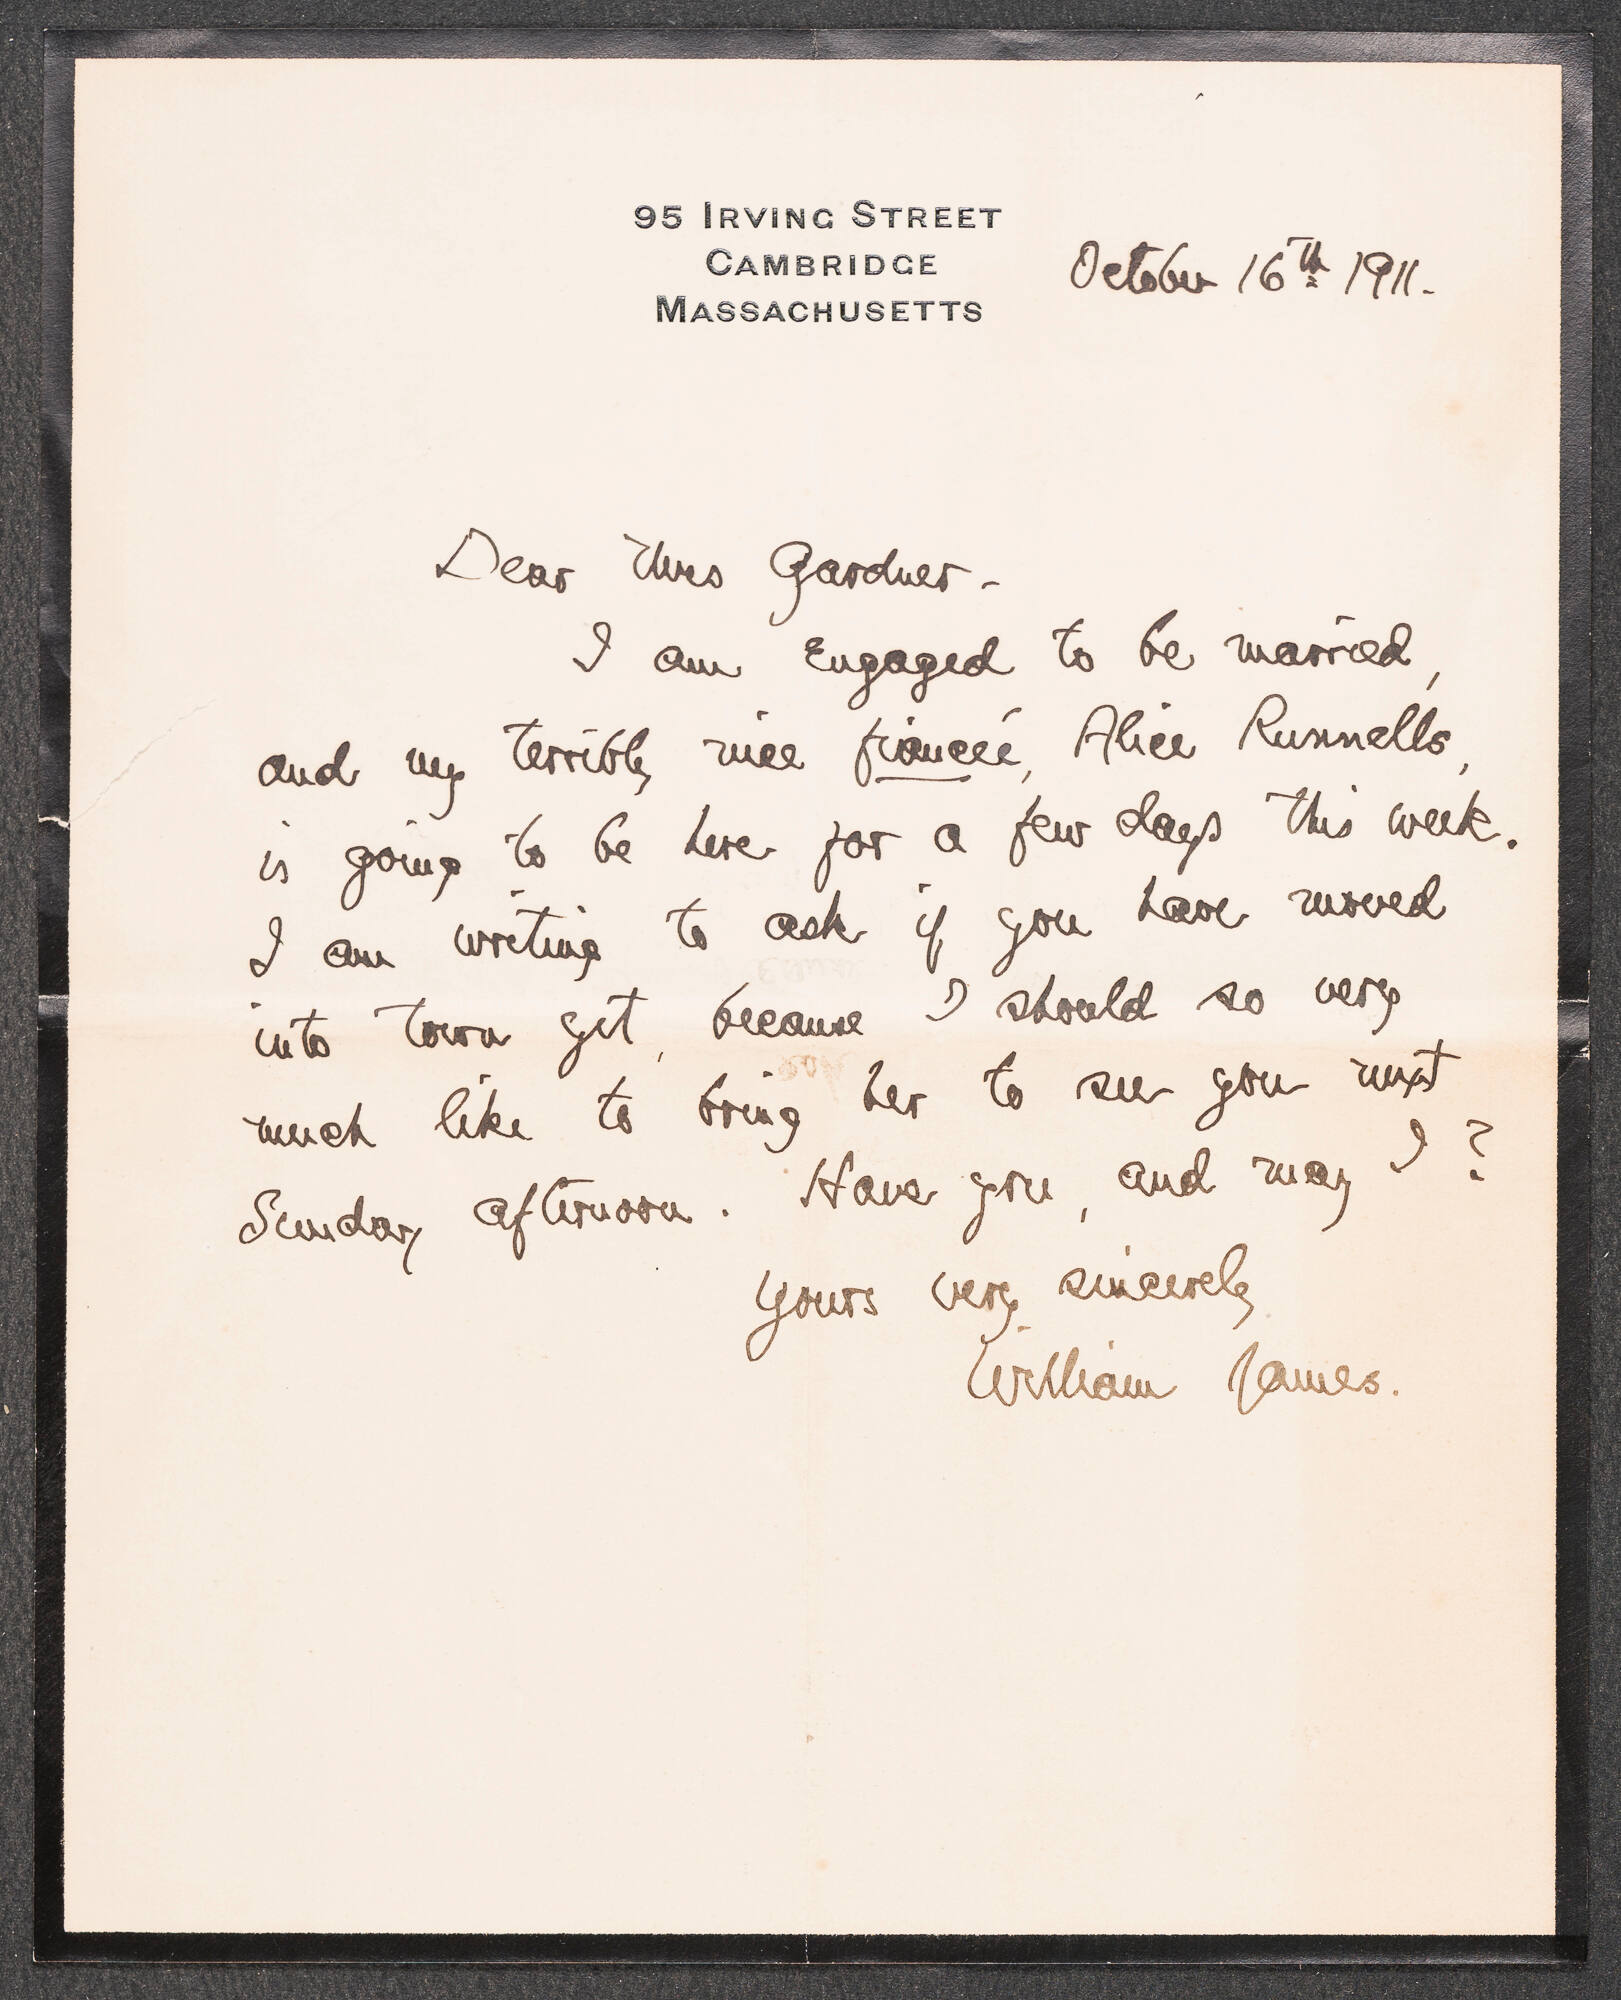 95 IRVING STREET
CAMBRIDGE
MASSACHUSETTS
October 16th 1911.
Dear Mrs Gardner-
I am Engaged to be married,
and my terribly nice fianceé, Alice Runnells,
is going to be here for a few days this week.
I am writing to ask if you have moved
into town yet, because I should so very
much like to bring her to see you next
Sunday afternoon. Have you, and may I?
Yours very sincerely
William James.